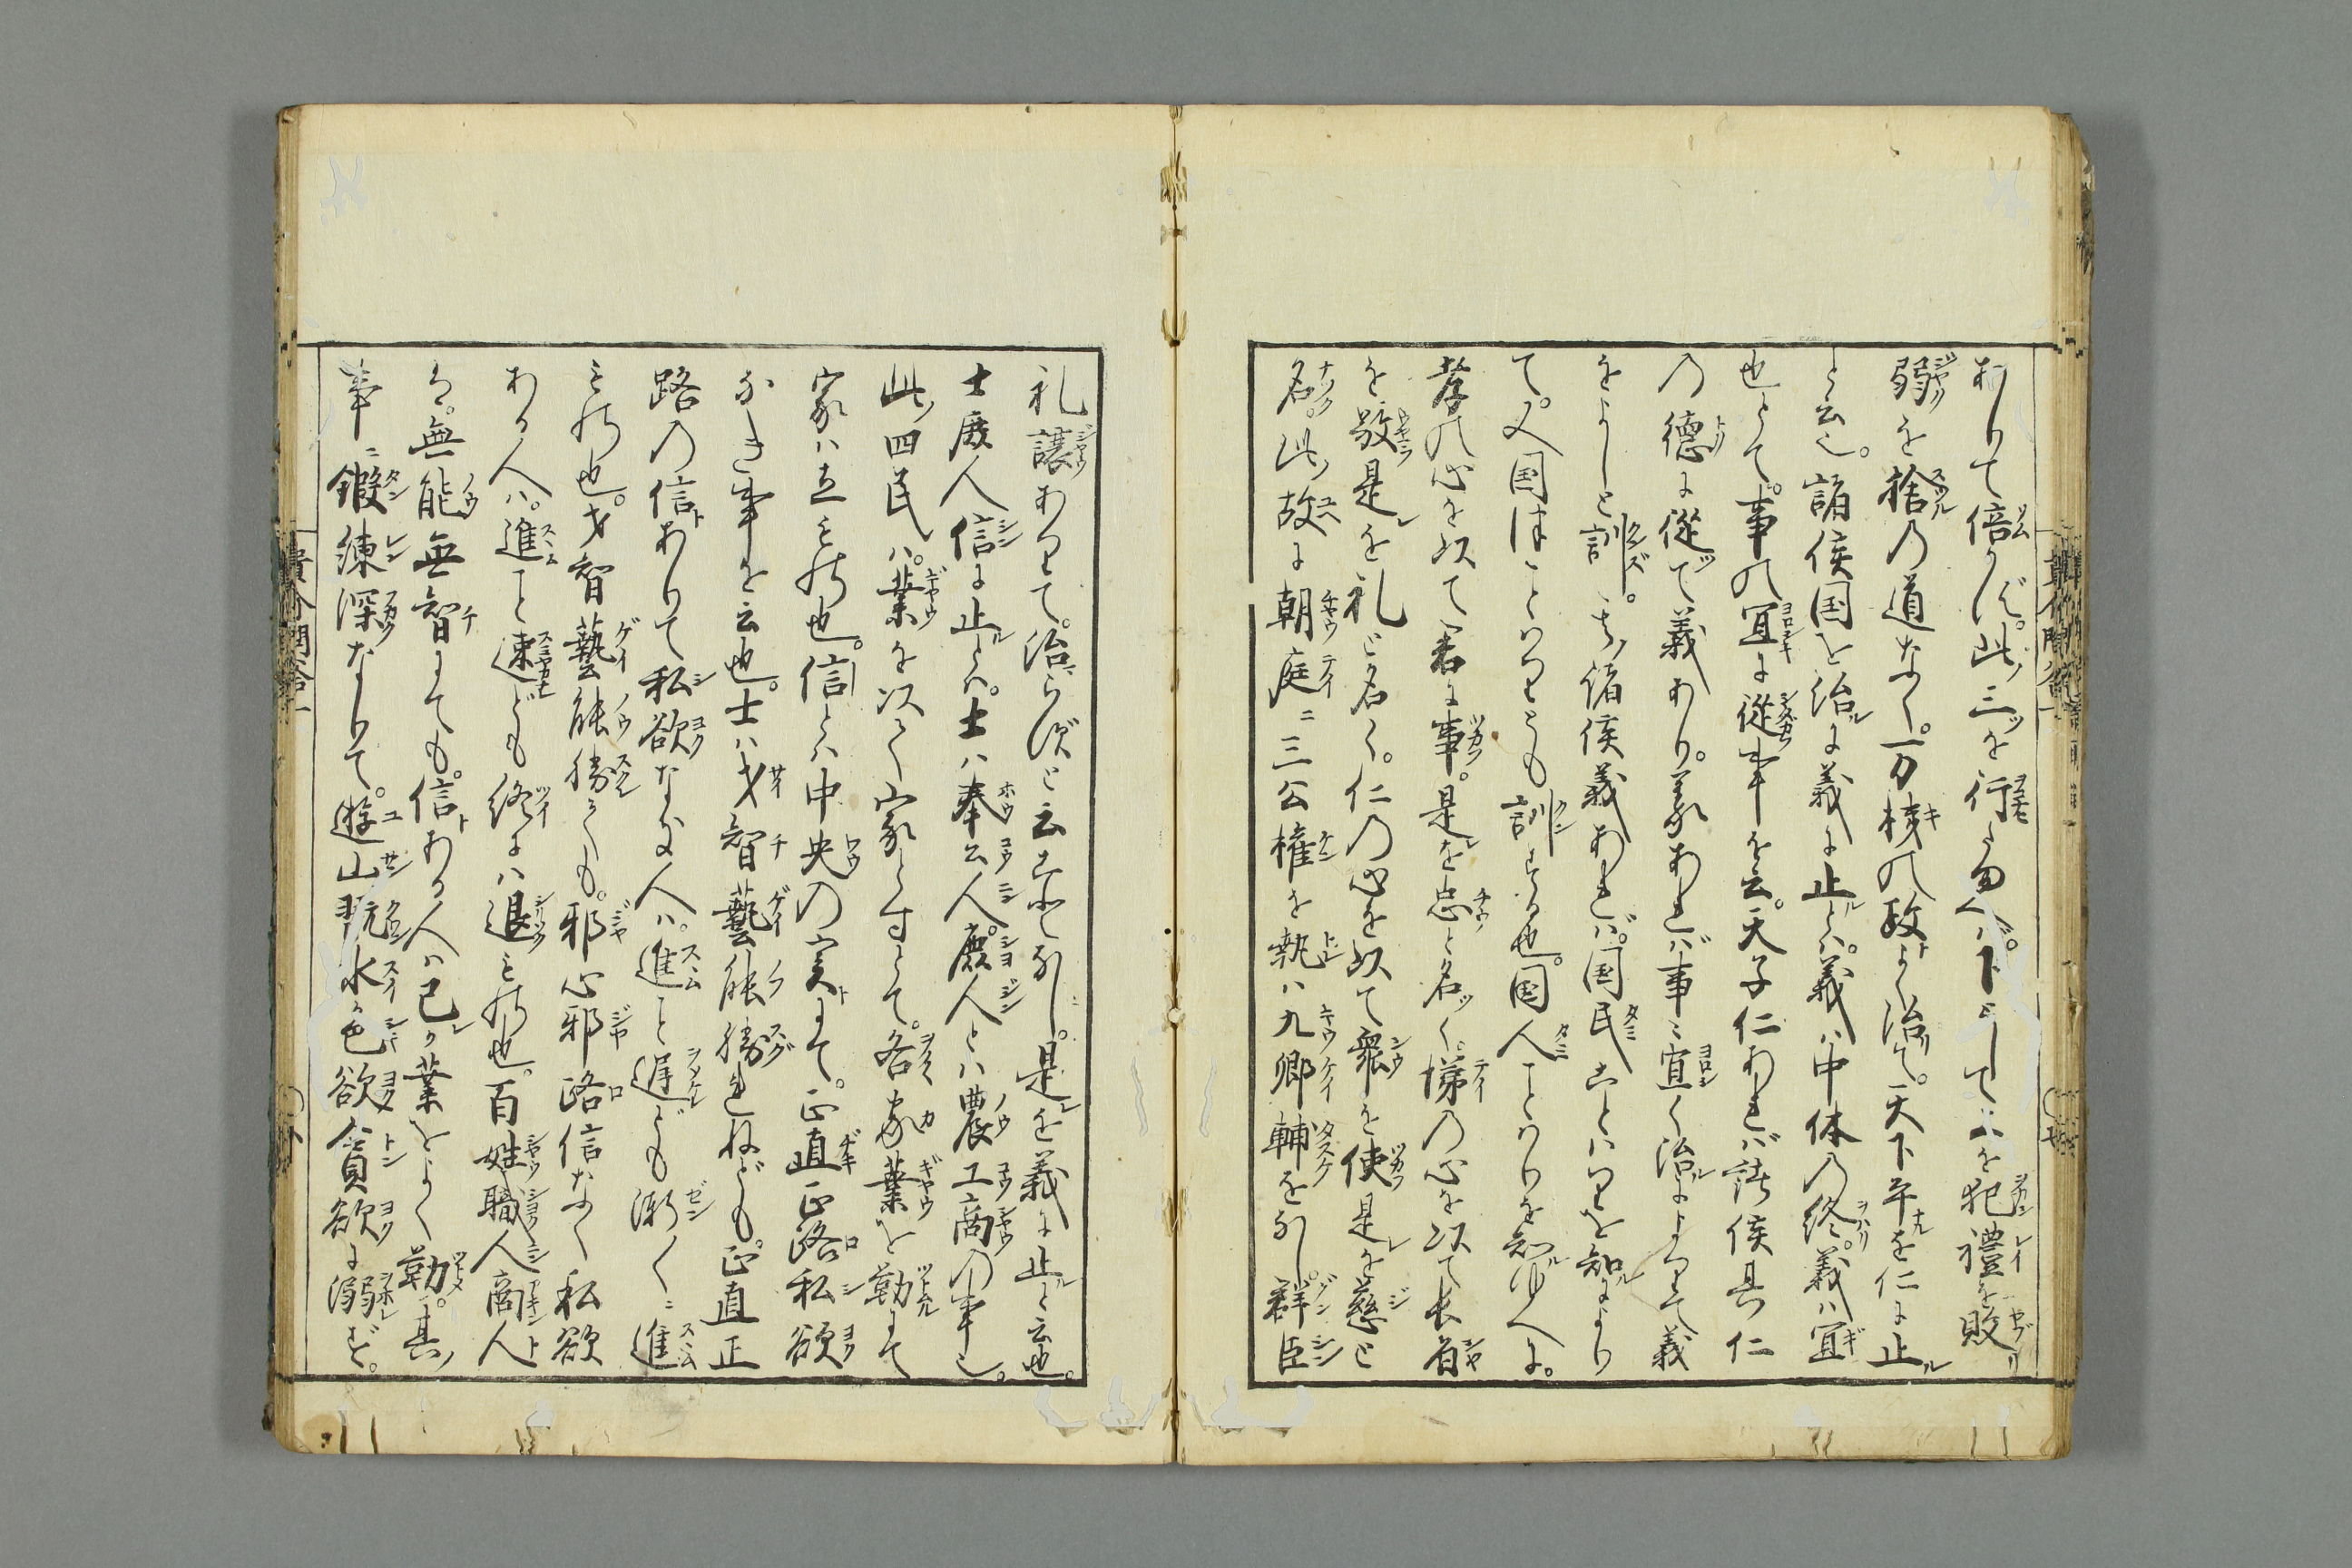 おりて倍かず。此三ッを行ふ勿ヘバ。下として上を犯禮を敗
弱を捨の道なく。一万機の政よく治て。天下平を仁に止
と云也。諸侯国を治に義に止とハ。義ハ中体の終。義ハ宜
也とて。事の宜に従事を云。天子仁あれバ諸侯其仁
の徳に従て義あり。義あれバ事に宜く治によりて義
をよしと訓ず。諸侯義あれバ。国民ことハりを知により
て。又国はことハりとも訓ずる也。国人ことハりを知ゆへに。
孝の心を以て君に事。是を忠と名く。悌の心を以て長者
を敬是を礼と名く。仁の心を以て衆を使是を慈と
名。此故に朝庭ニ三公権を執ハ九卿輔を列し。群臣
礼譲ありて。治らずと云ことなし。是を義に止と云也。
士庶人信に止とハ。士ハ奉公人。庶人とハ農工商の事也。
此四民ハ。業を以て家とすとて。各家業を勤にて
家ハ立もの也。信とハ中央の実にて。正直正路私欲
なき事を云也。士ハ才智藝能勝れねども。正直正
路の信ありて私欲なき人ハ。進こと遅ども漸〱ニ進
もの也。才智藝能勝ても。邪心邪路信なく私欲
ある人ハ。進こと速ども終にハ退もの也。百姓職人商人
も。無能無智にても。信ある人ハ己が業をよく勤。其
事ニ鍛練深なりて。遊山翫水色欲貪欲に溺ず。